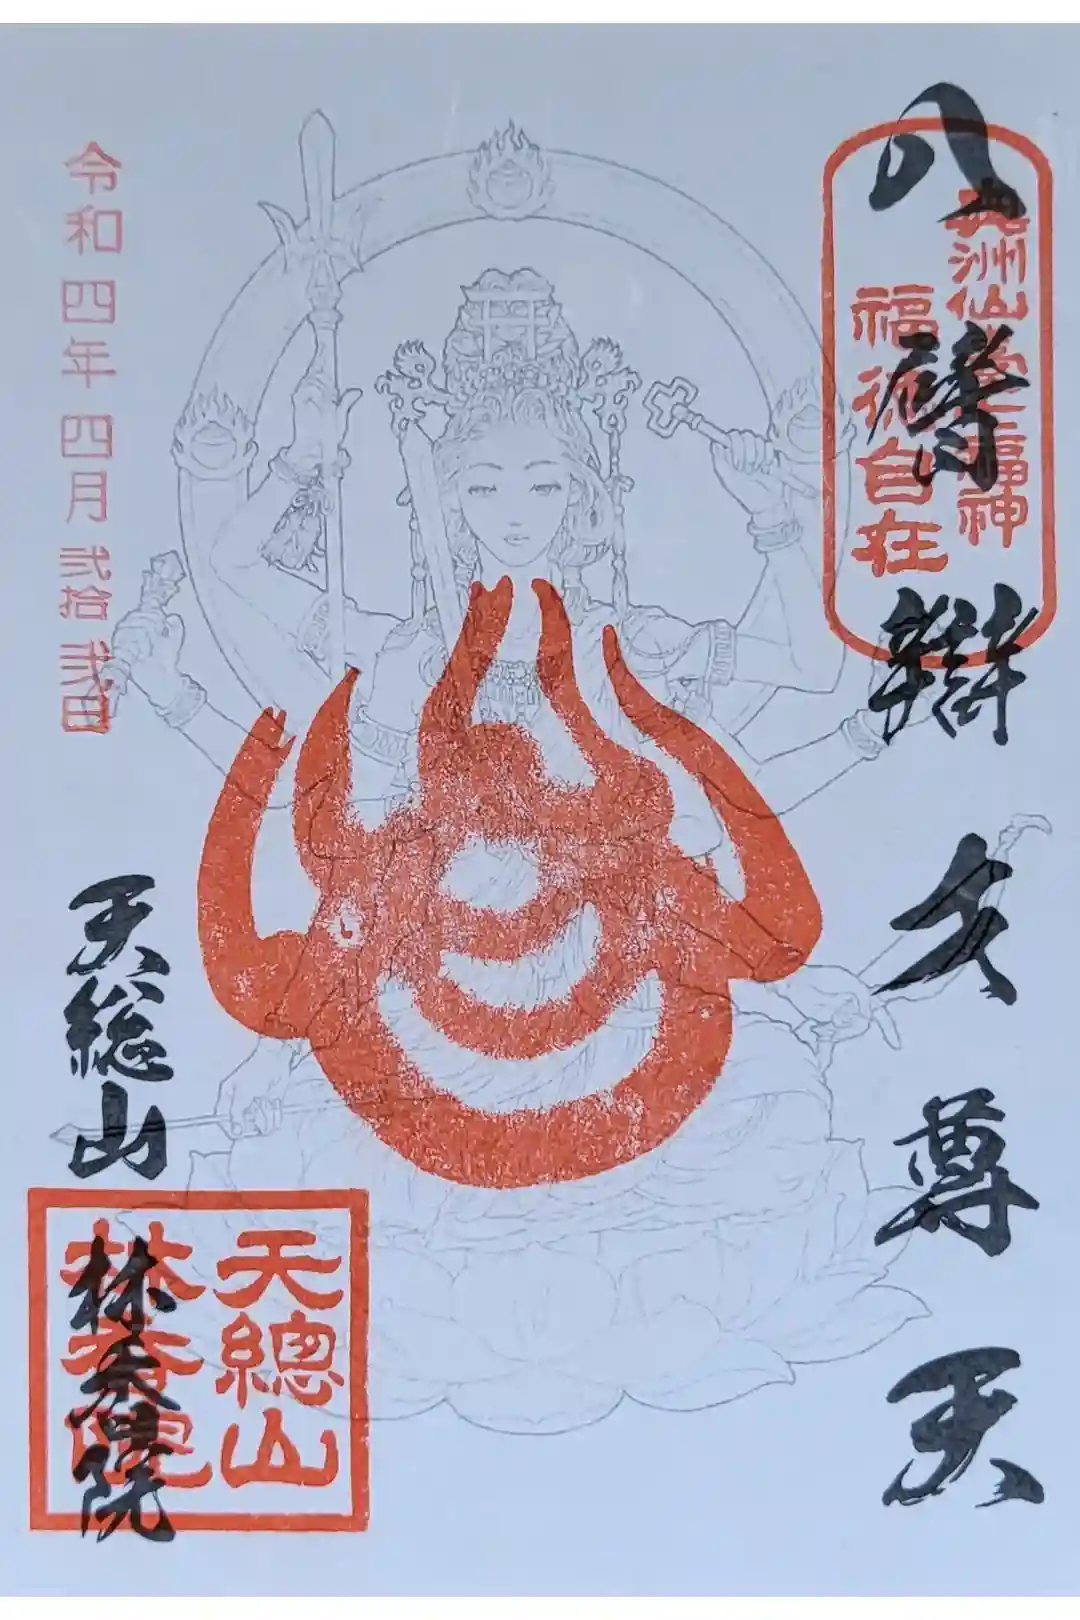 八臂辯才尊天
奥州仙臺七福神
福徳自在
令和四年四月弐拾弐日
天総山
林香院
天總山
林香院